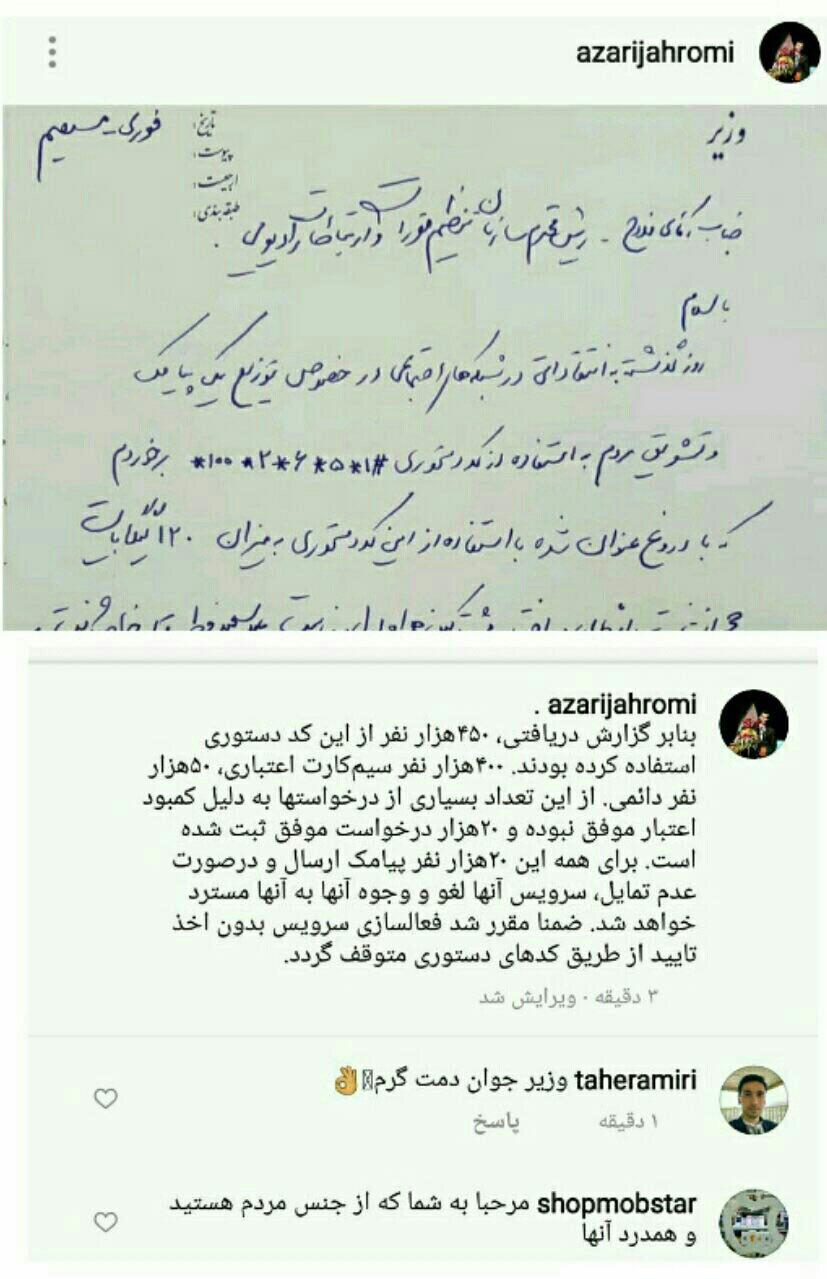 azarijahromi
وزیر
فوری - مستقیم
تاریخ:
پیوست:
طبقه‌بندی:
جناب آقای فلاح - رئیس محترم سازمان تنظیم مقررات و ارتباطات رادیویی.
با سلام
روز گذشته به انتقاداتی در شبکه‌های اجتماعی در خصوص توزیع یک پیامک
و تشویق مردم به استفاده از کد دستوری #۱*۵*۶*۲*۱۰۰* برخوردم
که با دروغ عنوان شده با استفاده از این کد دستوری به میزان ۱۲۰ گیگابایت
azarijahromi .
بنابر گزارش دریافتی، ۴۵۰هزار نفر از این کد دستوری
استفاده کرده بودند. ۴۰۰هزار نفر سیم‌کارت اعتباری، ۵۰هزار
نفر دائمی. از این تعداد بسیاری از درخواستها به دلیل کمبود
اعتبار موفق نبوده و ۲۰هزار درخواست موفق ثبت شده
است. برای همه این ۲۰هزار نفر پیامک ارسال و درصورت
عدم تمایل، سرویس آنها لغو و وجوه آنها به آنها مسترد
خواهد شد. ضمنا مقرر شد فعالسازی سرویس بدون اخذ
تایید از طریق کدهای دستوری متوقف گردد.
۳ دقیقه · ویرایش شد
taheramiri وزیر جوان دمت گرم👌
۱ دقیقه پاسخ
shopmobstar مرحبا به شما که از جنس مردم هستید
و همدرد آنها